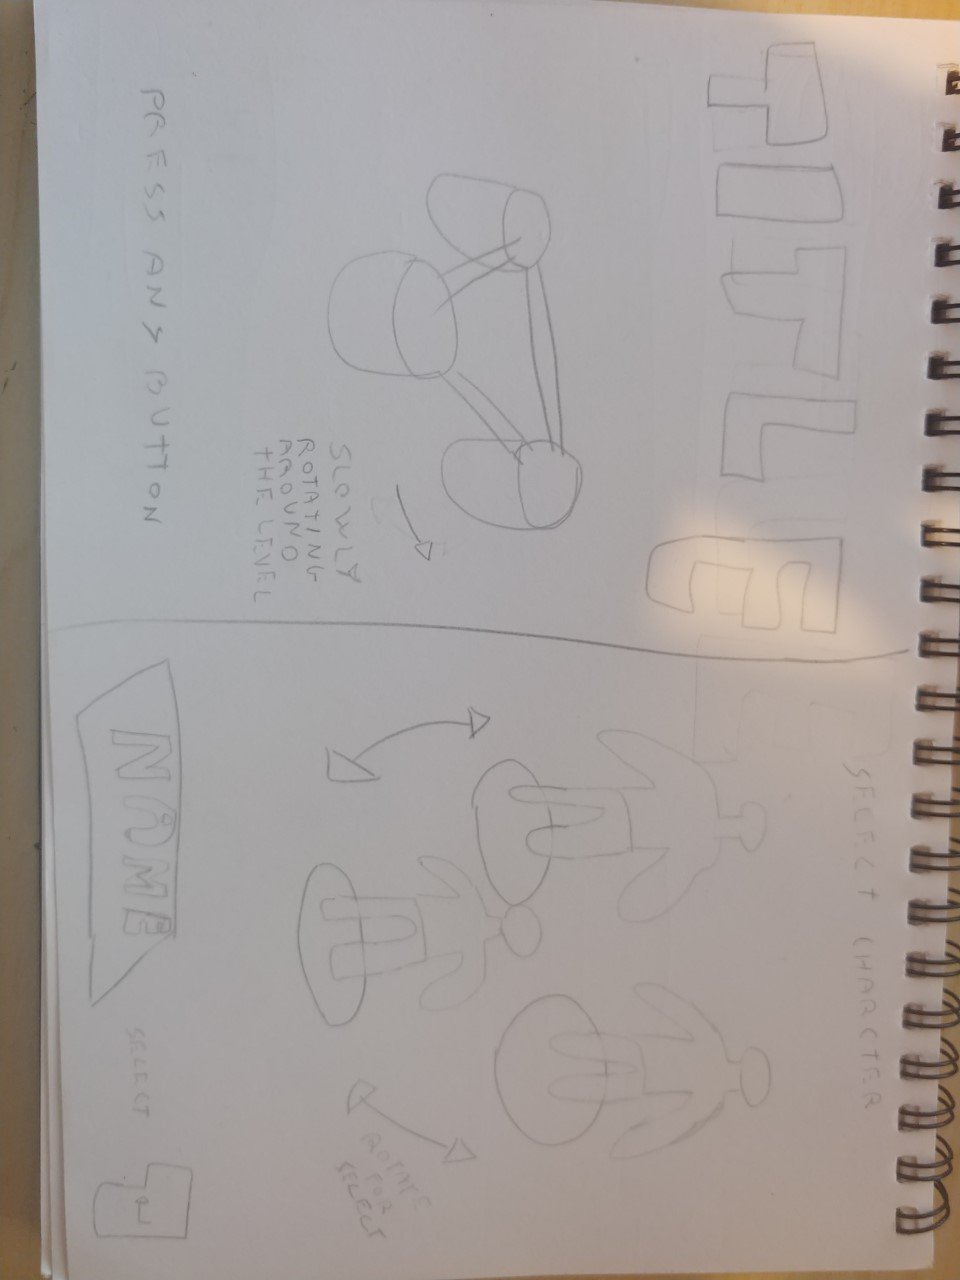 TITLE
SLOWLY
ROTATING
AROUND
THE LEVEL
PRESS ANY BUTTON
SELECT CHARCTER
ROTATE
FOR
SELECT
NAME
SELECT